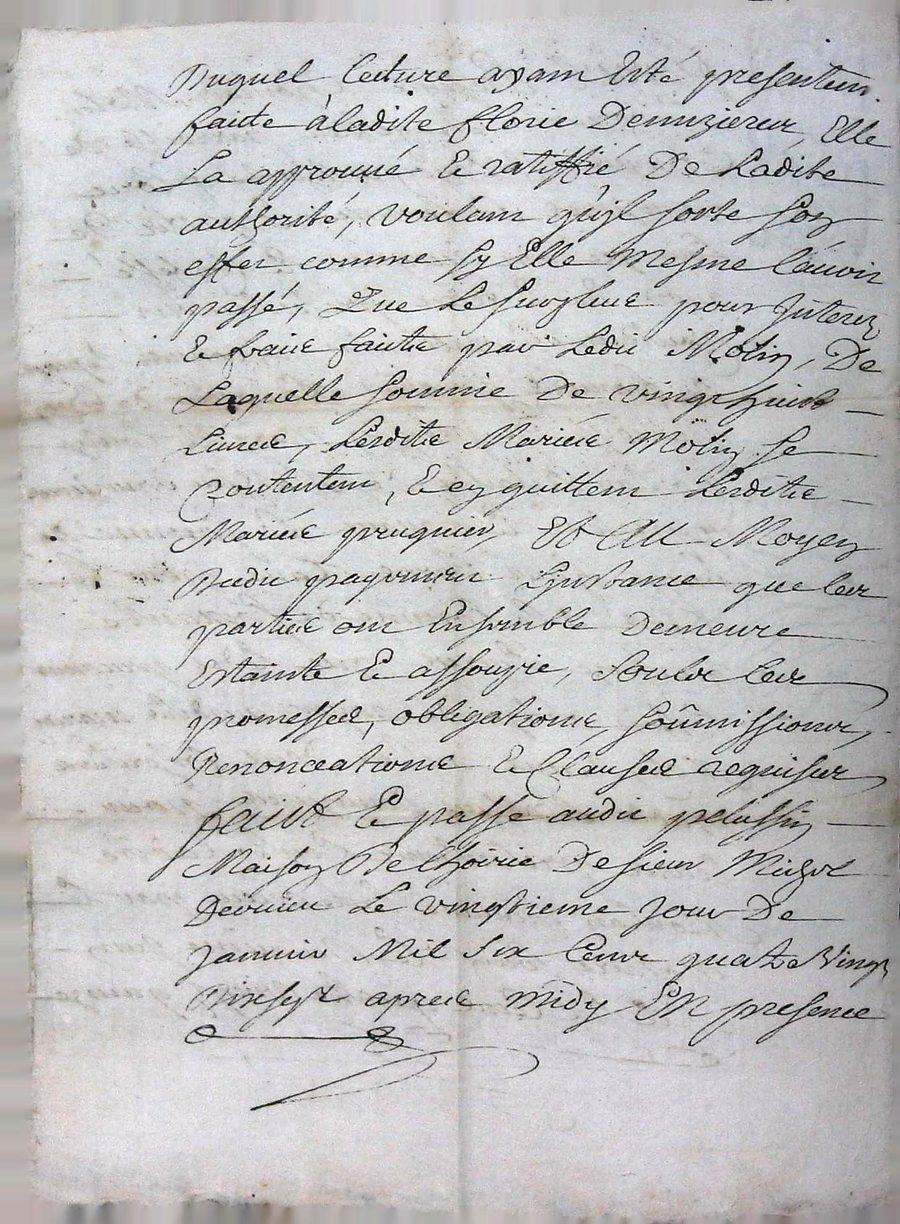 Duquel lecture ayant esté presentem.
faite à ladite florie Demizieux, Elle
La approuué Et ratiffié De Ladite
authorité, voulant quyl sorte son
effet comme sy Elle Mesme l'auoir
passé, Que Le surplus pour Interez
Et frais faitz par Ledit Molin, De
Laquelle somme De vingt huict
Liures, Lesditz Mariés Molin se
Contentent, Et en quittent Lesditz
Mariés pruquier, Et Au Moyen
Dudit payement Linstance que les
parties ont Ensemble Demeure
Estainte Et assoupie, Soubz Les
promesses, obligations, soûmissions,
Renonceations Et Clauses requises
faict Et passé audit pelussin
Maison De lhoirie De sieur
Le vingtieme jour De
januier Mil six Cent quatre Vingt
Dixsept apres midy EN presence